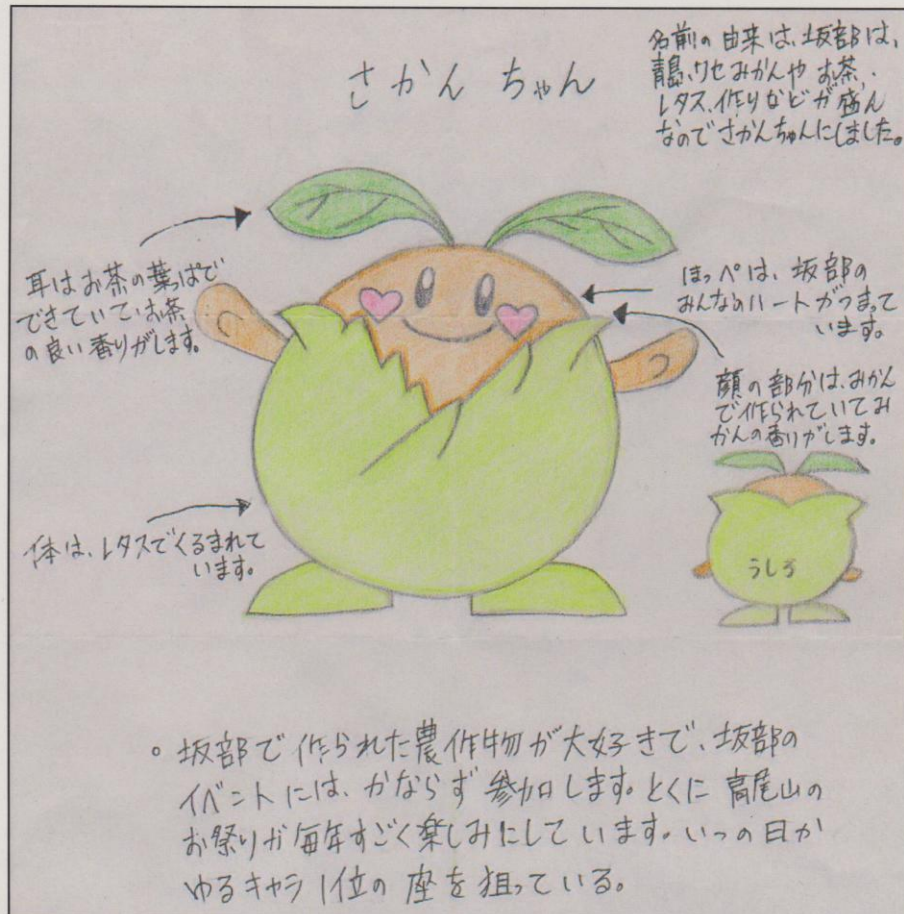 さかんちゃん
名前の由来は、坂部は、
青島、ワセみかんや お茶、
レタス、作りなどが盛ん
なのでさかんちゃんにしました。
耳はお茶の葉っぱで
できていてお茶
の良い香りがします。
ほっぺは、坂部の
みんなのハートがつまって
います。
顔の部分は、みかん
で作られていてみ
かんの香りがします。
体は、レタスでくるまれて
います。
うしろ
。坂部で作られた農作物が大好きで、坂部の
イベントには、かならず参加します。とくに高尾山の
お祭りが毎年すごく楽しみにしています。いつの日か
ゆるキャラ1位の座を狙っている。